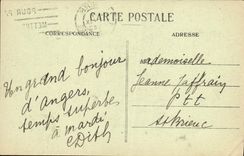 CARTE POSTALE
CORRESPONDANCE
ADRESSE
Un grand bonjour
d'angers,
temps superbe
à mardi,
Edith
Mademoiselle
Jeanne Jaffrain
Ptt
St Brieuc